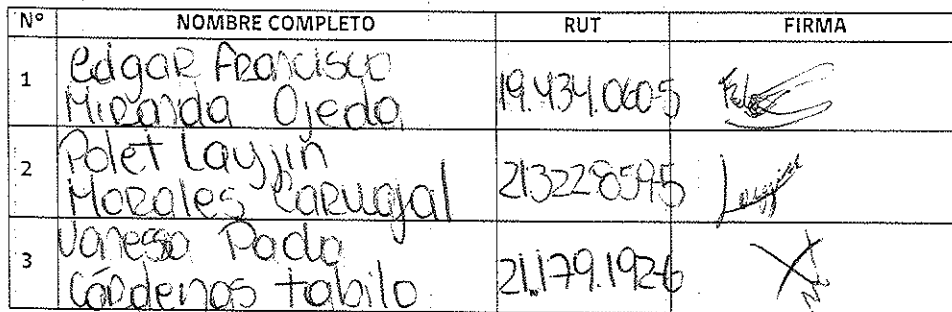 Nº NOMBRE COMPLETO RUT FIRMA
1 Edgar Francisco
Miranda Ojeda 19.434.060-5
2 Polet Layjin
Morales Carvajal 21322859-5
3 Vanessa Paola
Cárdenas tabilo 21.179.192-6